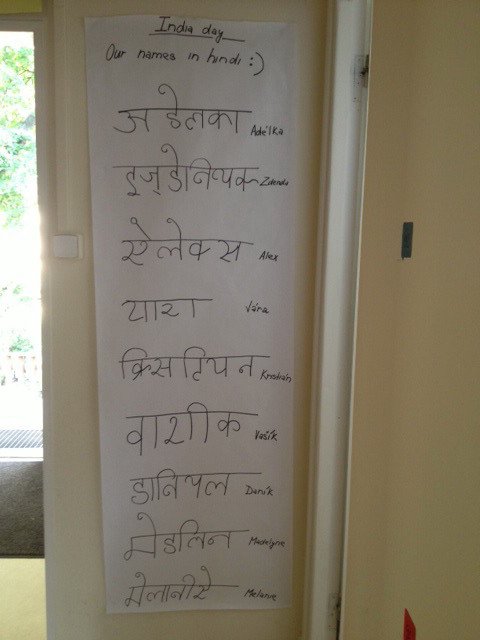 India day
Our names in hindi :)
अडेलका Adélka
इज्डेनियक Zdenda
ऐलेक्स Alex
यारा Jára
क्रिसटियन Kristián
वाशीक Vašík
डानियल Daník
मेडलिन Madelyne
मेलानीऐ Melanie